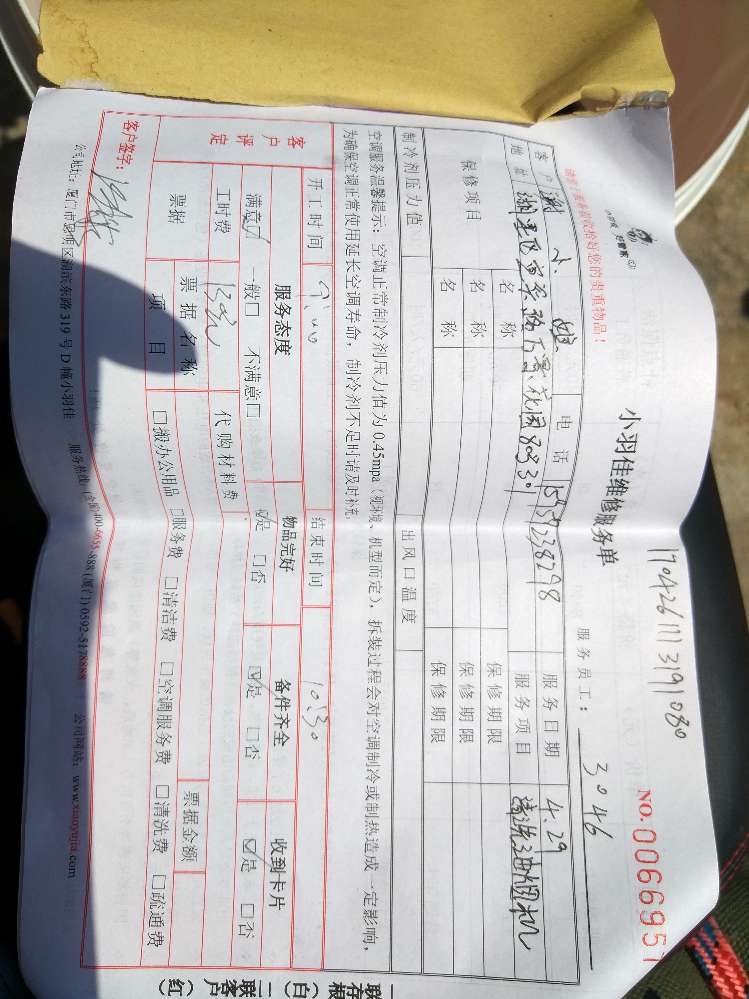 小羽佳维修服务单
1704261113191080
NO.0066957
请客户服务前收拾好您的贵重物品！
服务员工： 3046
客户 小姐 电话 服务日期 4.29
地址 服务项目 清洗油烟机
保修项目 名称 保修期限
名称 保修期限
名称 保修期限
制冷剂压力值 出风口温度
空调服务温馨提示：空调正常制冷剂压力值为0.45mpa（视环境、机型而定），拆装过程会对空调制冷或制热造成一定影响，
为确保空调正常使用延长空调寿命，制冷剂不足时请及时补充。
开工时间 结束时间 10:30
客户评定 服务态度 物品完好 备件齐全 收到卡片
满意☑ 一般□ 不满意□ ☑是 □否 ☑是 □否 ☑是 □否
工时费 130元 代购材料费
票据 票据名称 票据金额
项目 □搬办公用品 □服务费 □清洁费 □空调服务费 □清洗费 □疏通费
客户签字：
公司地址：厦门市思明区湖滨东路319号D幢小羽佳 服务热线：(全国)400-6655-888 (厦门)0592-5178888 公司网站：www.xiaoyujia.com
一联存根（白）二联客户（红）